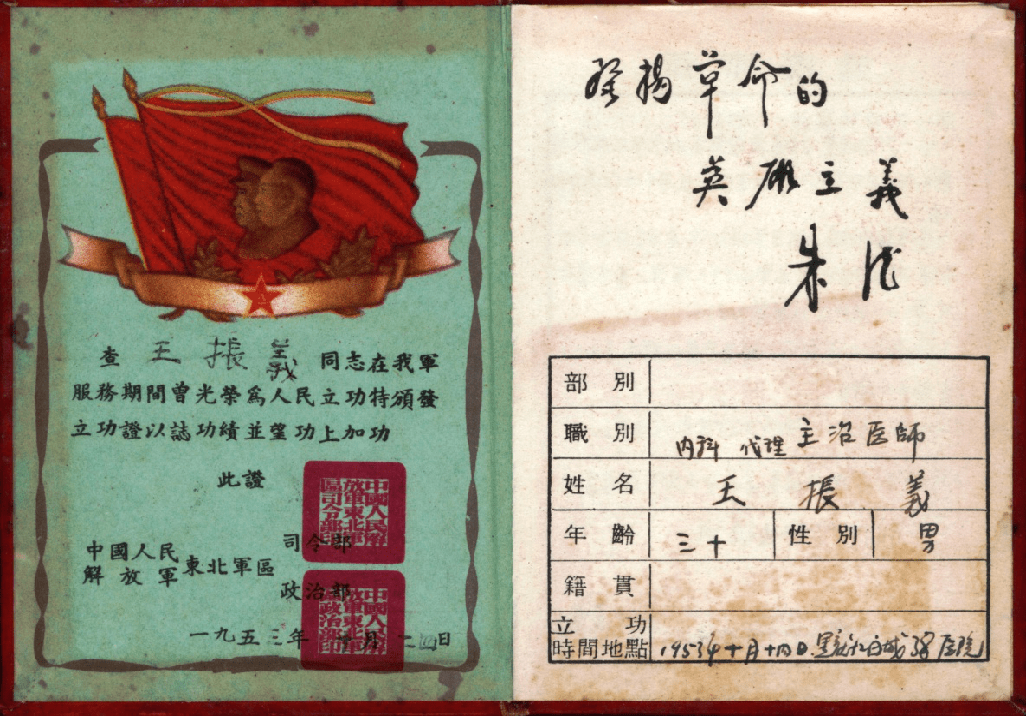 查 王 振 義 同志在我軍
服務期間曾光榮爲人民立功特頒發
立功證以誌功績並望功上加功
此證
中國人民
解放軍 東北軍區
司令部
政治部
中國人民解放軍東北軍區司令部印
中國人民解放軍東北軍區政治部印
一九五三年 十月二四日
發揚革命的
英雄主義
朱德
部別
職別 內科 代理 主治医師
姓名 王 振 義
年齡 三十 性別 男
籍貫
立功
時間地點 1953年十月十四日